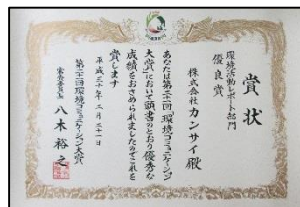 賞状
環境活動レポート部門
優良賞
株式会社カンサイ殿
あなたは第二十一回「環境コミュニケーション
大賞」において頭書のとおり優秀な
成績をおさめられましたのでこれを
賞します
平成三十年二月二十一日
第二十一回環境コミュニケーション大賞
審査委員長 八木裕之